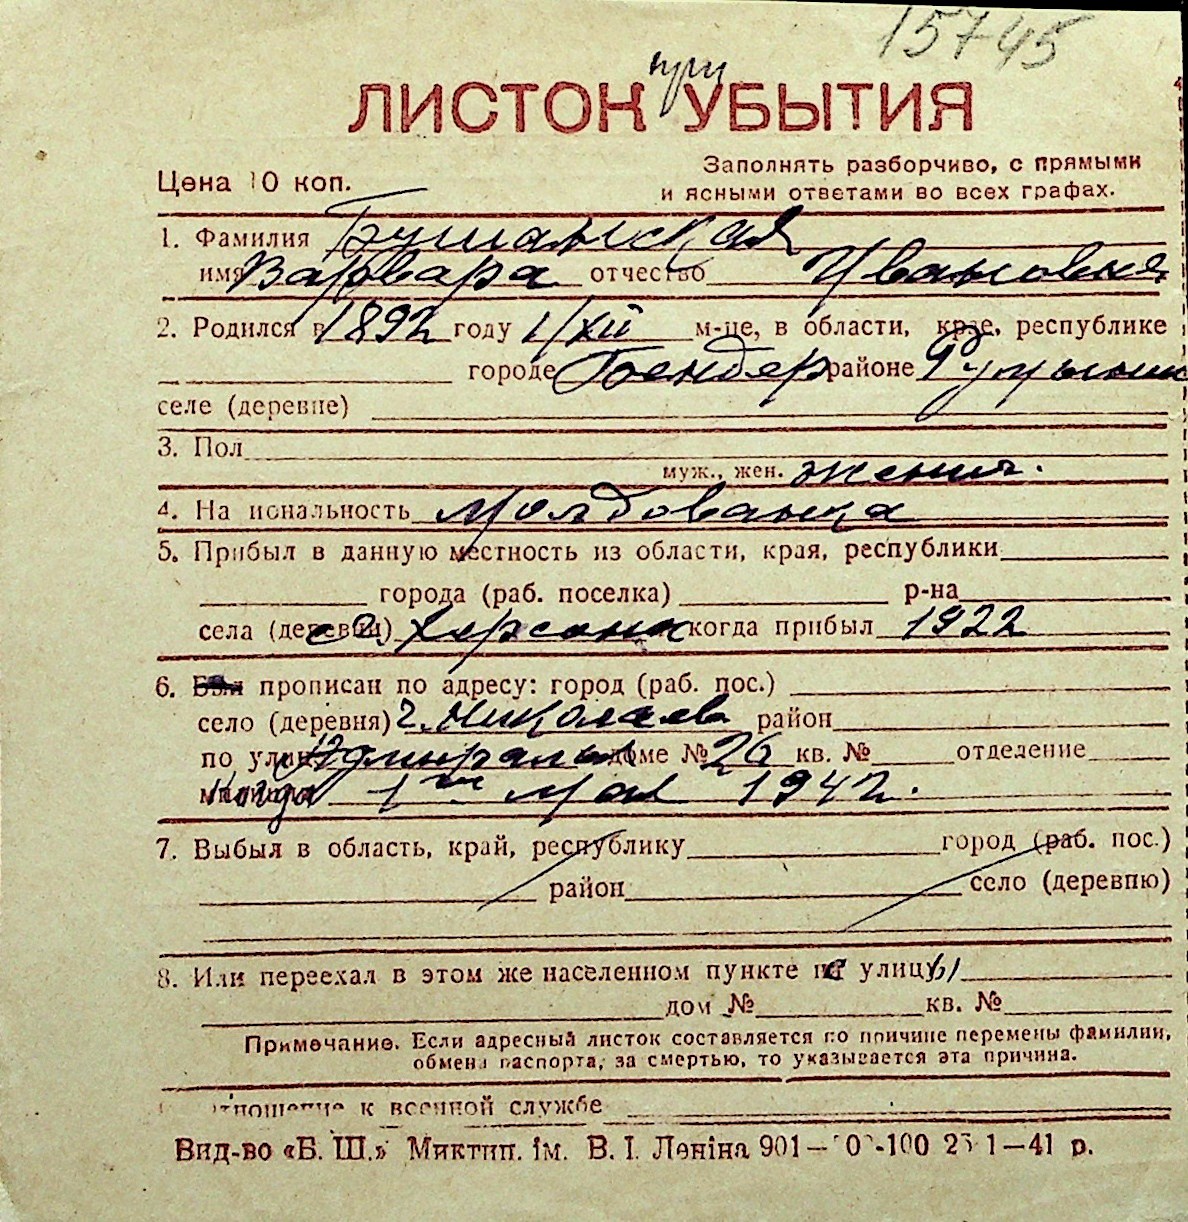 15745
при
ЛИСТОК УБЫТИЯ
Цена 10 коп.
Заполнять разборчиво, с прямыми
и ясными ответами во всех графах.
1. Фамилия Бушанская
имя Варвара отчество Ивановна
2. Родился в 1892 году 1/XII м-це, в области, крае, республике
городе Бендер районе Румынии
селе (деревне)
3. Пол
муж., жен. женщ.
4. На иональность Молдованка
5. Прибыл в данную местность из области, края, республики
города (раб. поселка) р-на
села (деревни) Херсона когда прибыл 1922
6. Был прописан по адресу: город (раб. пос.)
село (деревня) г. Николаев район
по улице доме № 26 кв. № отделение
когда 1го Мая 1942.
7. Выбыл в область, край, республику город (раб. пос.)
район село (деревню)
8. Или переехал в этом же населенном пункте не улицы
дом № кв. №
Примечание. Если адресный листок составляется по причине перемены фамилии,
обмена паспорта, за смертью, то указывается эта причина.
тношение к военной службе
Вид-во «Б. Ш.» Миктип. ім. В. І. Леніна 901— 1—41 р.